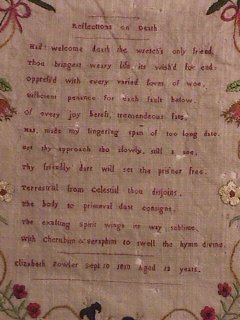 Reflections on Death
Hail welcome death the wretch's only friend,
Thou bringest weary life its wish'd for end:
Oppress'd with every varied form of woe,
Sufficient penance for each fault below.
Of every joy bereft, tremendous fate,
Has made my lingering span of too long date.
Yet thy approach tho slowly, still I see,
Thy friendly dart will set the prisner free.
Terrestrial from Celestial thou disjoins,
The body to primeval dust consigns.
The exulting Spirit wings its way sublime,
With Cherubim & seraphim to swell the hymn divine.
Elizabeth Fowler Sept 10 1810 Aged 12 years.